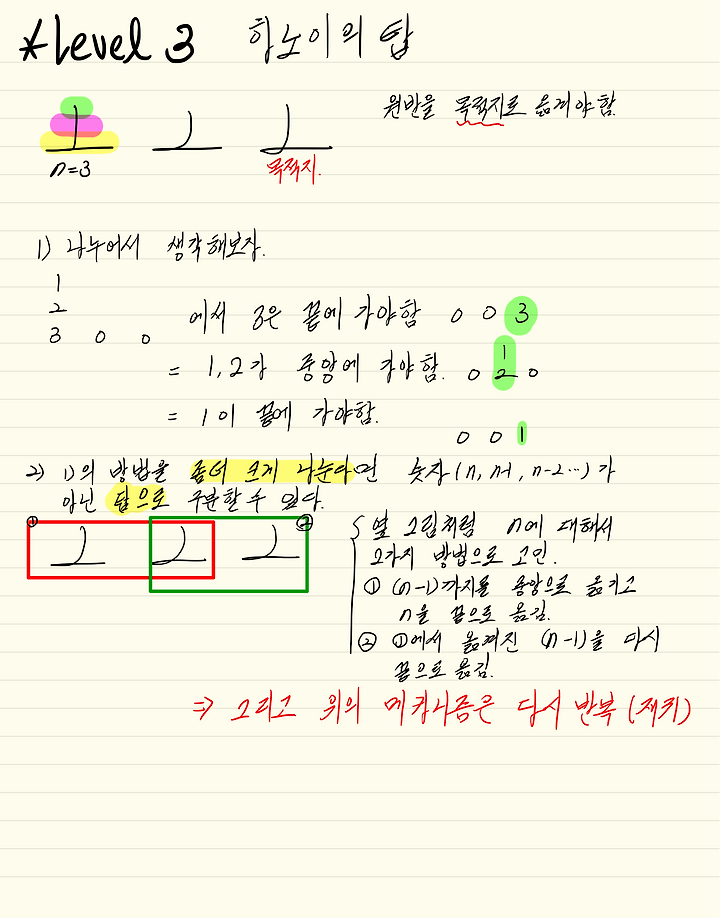 *Level 3 하노이의 탑
원반을 목적지로 옮겨야함.
n=3
목적지.
1) 나누어서 생각해보자.
1
2
3 0 0
에서 3은 끝에 가야함 0 0 3
= 1,2가 중앙에 가야함. 0 1 2 0
= 1이 끝에 가야함.
0 0 1
2) 1)의 방법을 좀더 크게 나눈다면 숫자(n, n-1, n-2…)가
아닌 탑으로 구분할 수 있다.
① ②
옆 그림처럼 n에 대해서
2가지 방법으로 고민.
① (n-1)까지를 중앙으로 옮기고
n을 끝으로 옮김.
② ①에서 옮겨진 (n-1)을 다시
끝으로 옮김.
⇒ 그리고 위의 메커니즘은 다시 반복 (재귀)